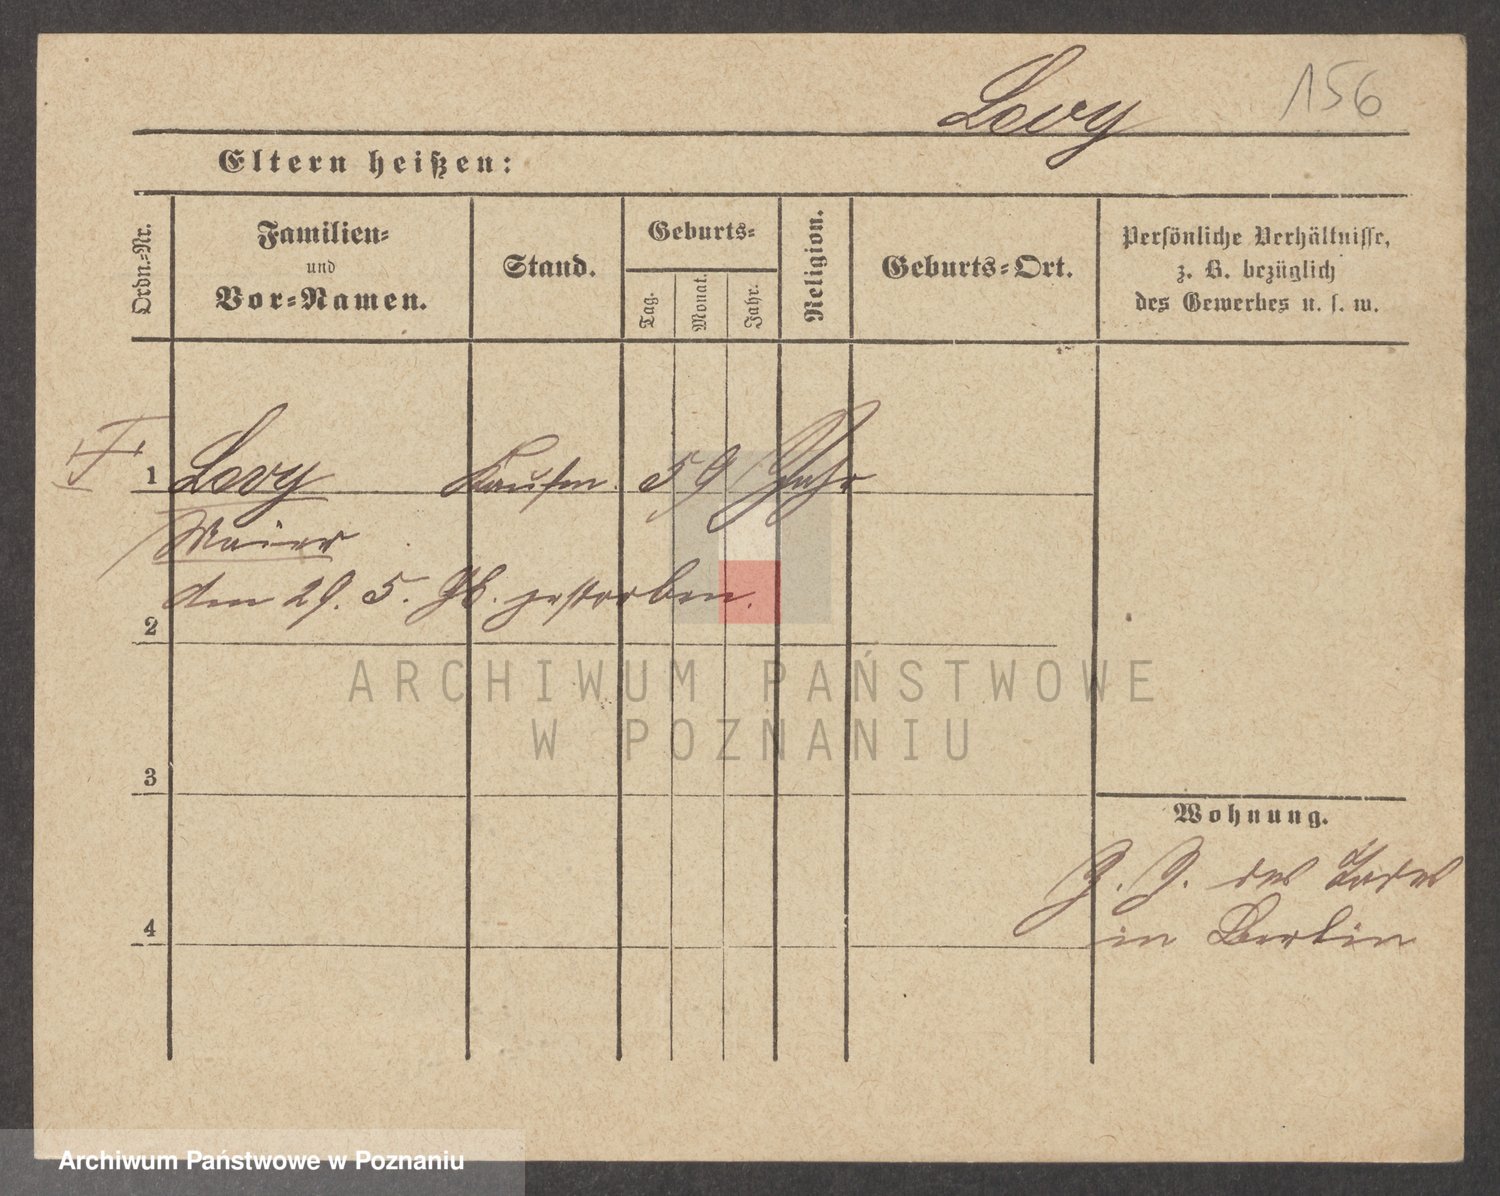 Levy
156
Eltern heißen:
Ordn.-Nr.
Familien-
und
Vor-Namen.
Stand.
Geburts-
Tag.
Monat.
Jahr.
Religion.
Geburts-Ort.
Persönliche Verhältnisse,
z. B. bezüglich
des Gewerbes u. s. w.
1 Levy Kaufm. 59 Jahr
Meier
den 29. 5. gestorben.
2
3
4
Wohnung.
Z. Z. des Todes
in Berlin
ARCHIWUM PAŃSTWOWE
W POZNANIU
Archiwum Państwowe w Poznaniu